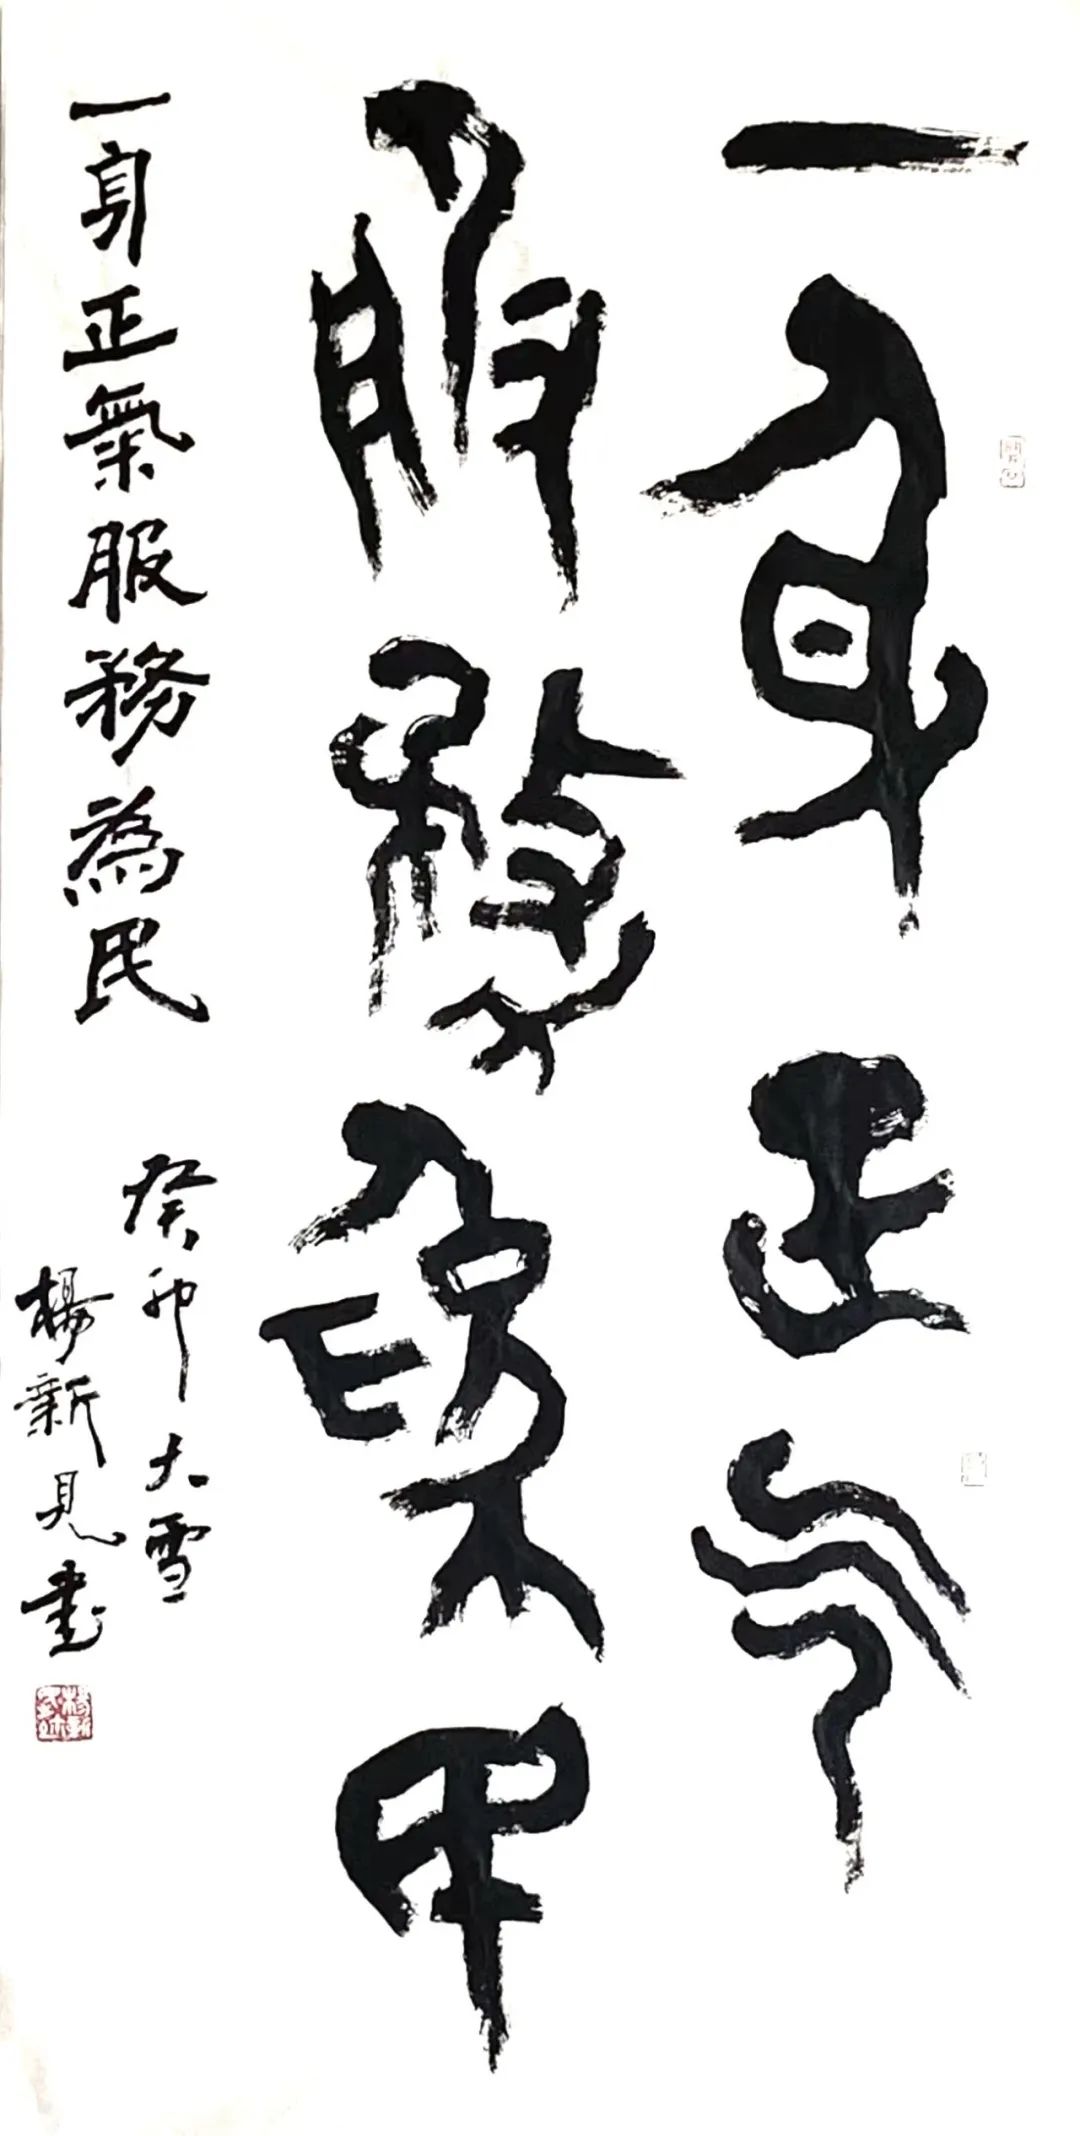 一身正气
服务为民
一身正氣服務為民
癸卯大雪
楊新見書